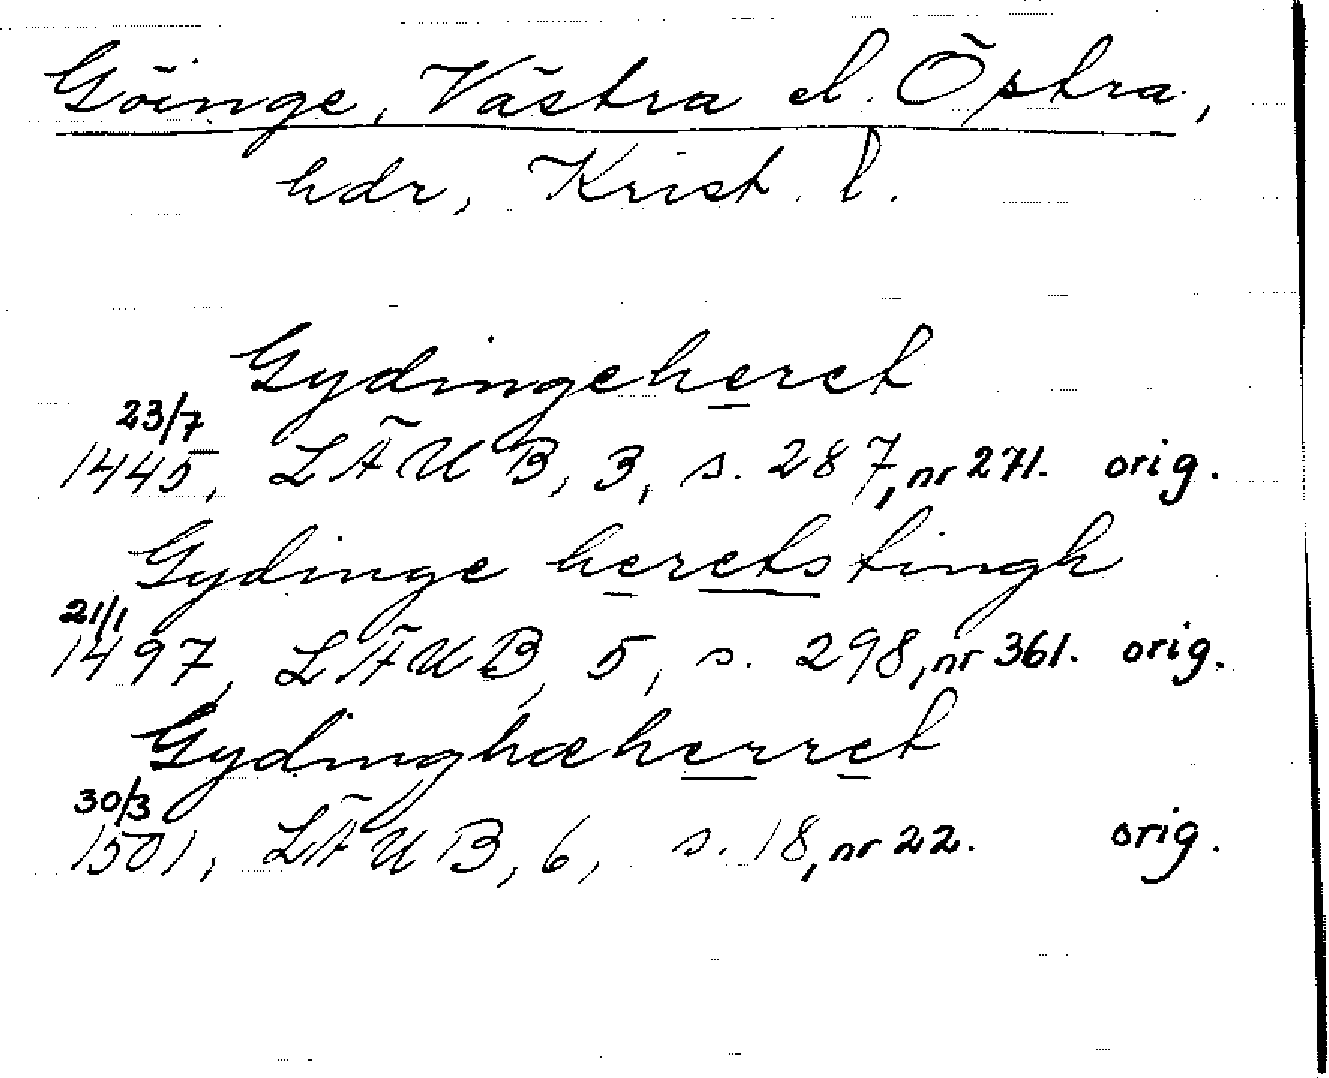 Göinge, Västra el. Östra,
hdr, Krist. l.
Gydingeheret
23/7
1445, LÄUB, 3, s. 287, nr 271. orig.
Gydinge heretstingh
21/1
1497, LÄUB, 5, s. 298, nr 361. orig.
Gydinghæherret
30/3
1501, LÄUB, 6, s. 18, nr 22. orig.